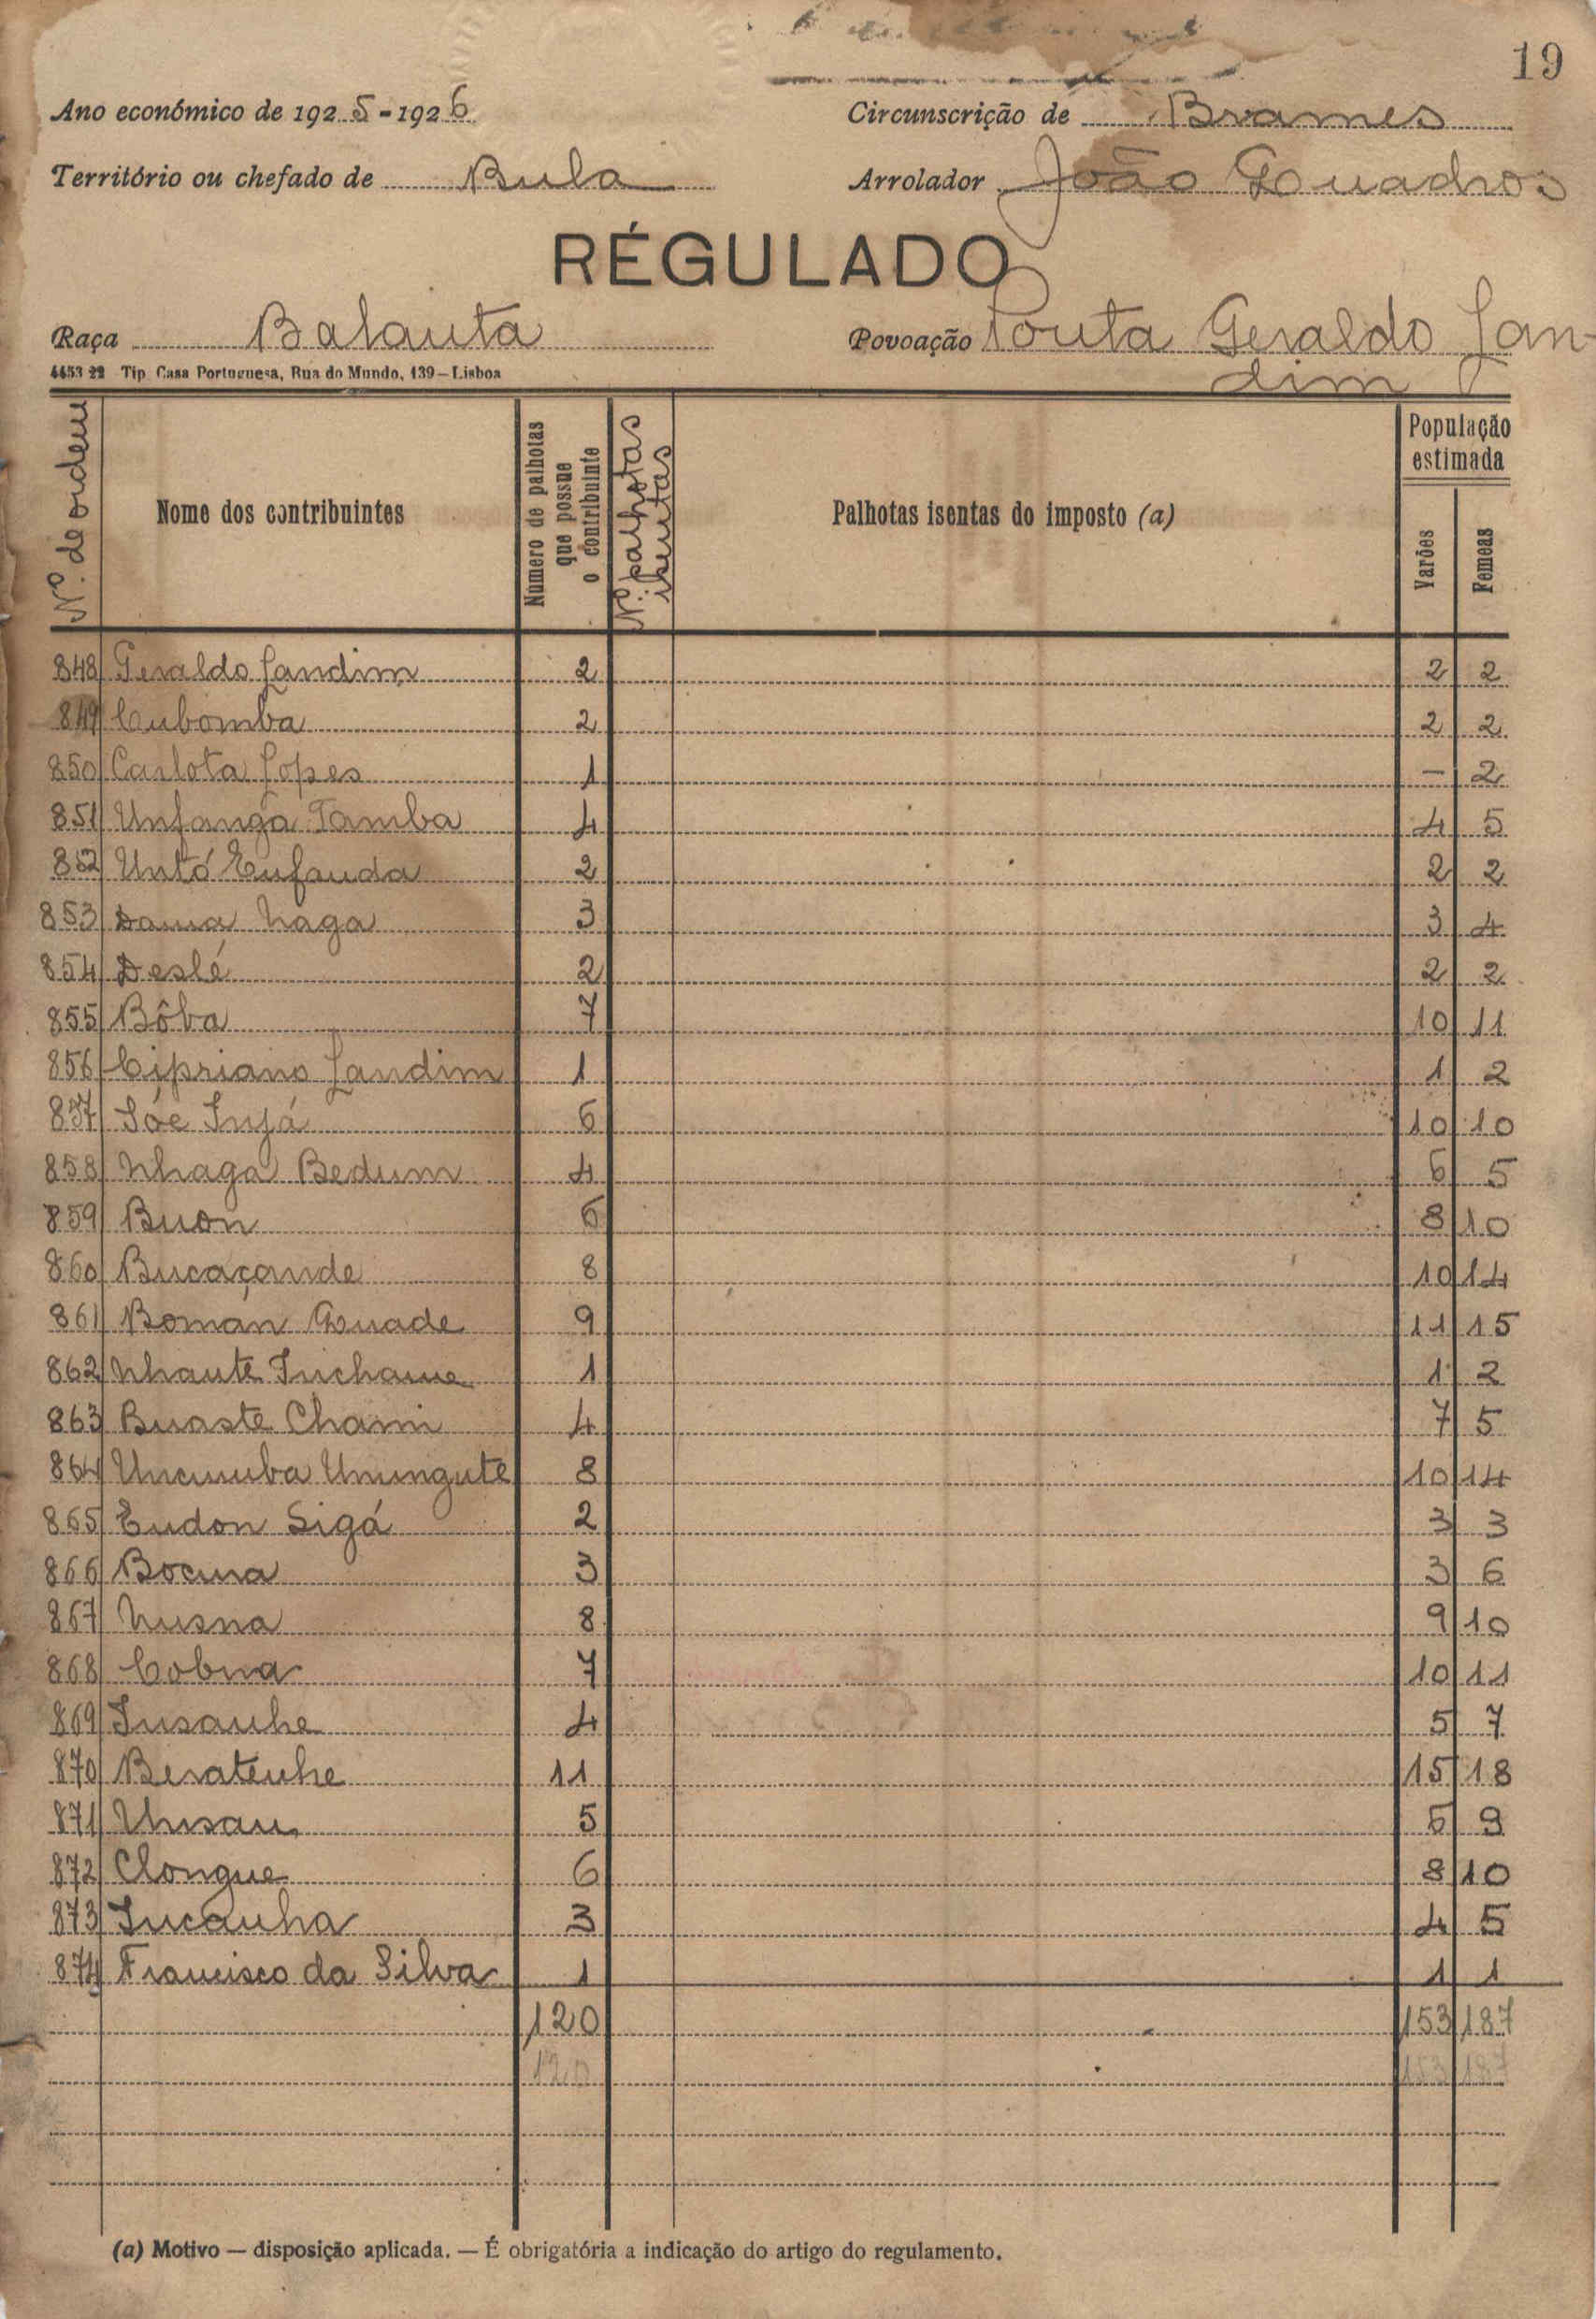 19
Ano económico de 1925-1926
Circunscrição de Brames
Território ou chefado de Bula
Arrolador João Quadros
RÉGULADO
Raça Balanta
Povoação Ponta Geraldo Lan-
dim
4453 22 Tip. Casa Portuguesa, Rua do Mundo, 139—Lisboa
Nº. de ordem
Nome dos contribuintes
Numero de palhotas que possue o contribuinte
Nº: palhotas isentas
Palhotas isentas do imposto (a)
População estimada
Varões
Femeas
848 Geraldo Landim 2 2 2
849 Cubomba 2 2 2
850 Carlota Lopes 1 — 2
851 Unfanga Tamba 4 4 5
852 Untó Enfanda 2 2 2
853 Dama Naga 3 3 4
854 Deslé 2 2 2
855 Bôba 7 10 11
856 Cipriano Landim 1 1 2
857 Sóe Injá 6 10 10
858 Nhaga Bedum 4 6 5
859 Buon 6 8 10
860 Bucaçande 8 10 14
861 Boman Quade 9 11 15
862 Nhante Inchame 1 1 2
863 Buaste Chami 4 7 5
864 Uncumba Unungute 8 10 14
865 Endon Sigá 2 3 3
866 Bocuna 3 3 6
867 Nusna 8 9 10
868 Cobna 7 10 11
869 Insanhe 4 5 7
870 Beratenhe 11 15 18
871 Unsau 5 6 9
872 Clongue 6 8 10
873 Incanha 3 4 5
874 Francisco da Silva 1 1 1
120 153 187
120 153 187
(a) Motivo — disposição aplicada. — É obrigatória a indicação do artigo do regulamento.